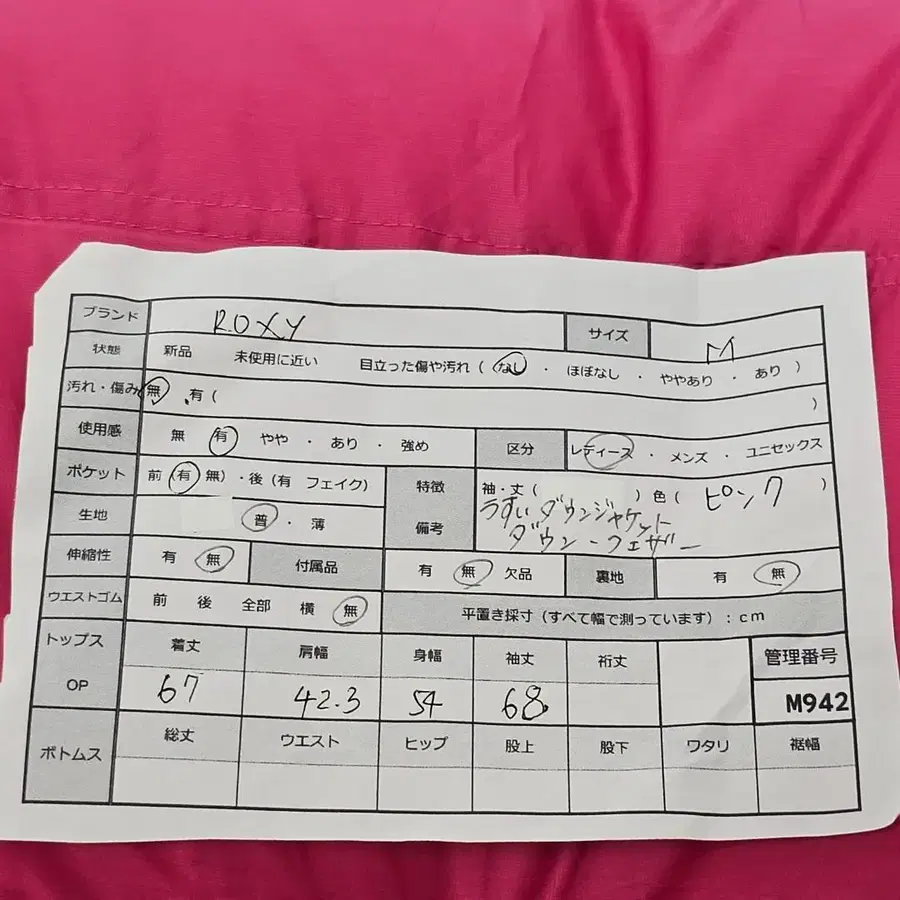 ブランド ROXY サイズ M
状態 新品 未使用に近い 目立った傷や汚れ ( なし ・ ほぼなし ・ ややあり ・ あり )
汚れ・傷み 無 . 有 ( )
使用感 無 有 やや ・ あり ・ 強め 区分 レディース ・ メンズ ・ ユニセックス
ポケット 前 (有 無) ・後 (有 フェイク) 特徴 備考 袖・丈 ( ) 色 ( ピンク )
うすいダウンジャケット
ダウン-フェザー
生地 普 ・ 薄
伸縮性 有 無 付属品 有 無 欠品 裏地 有 無
ウエストゴム 前 後 全部 横 無 平置き採寸 (すべて幅で測っています) : cm
トップス OP 着丈 肩幅 身幅 袖丈 裄丈 管理番号
67 42.3 54 68 M942
ボトムス 総丈 ウエスト ヒップ 股上 股下 ワタリ 裾幅